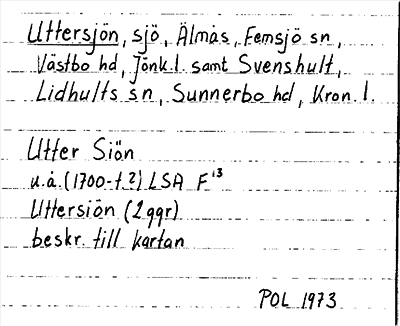 Uttersjön, sjö, Älmås, Femsjö sn,
Västbo hd, Jönk.l. samt Svenshult,
Lidhults sn, Sunnerbo hd, Kron.l.
Utter Siön
u.å. (1700-t.?) LSA F¹³
Uttersiön (2 ggr)
beskr. till kartan
POL 1973